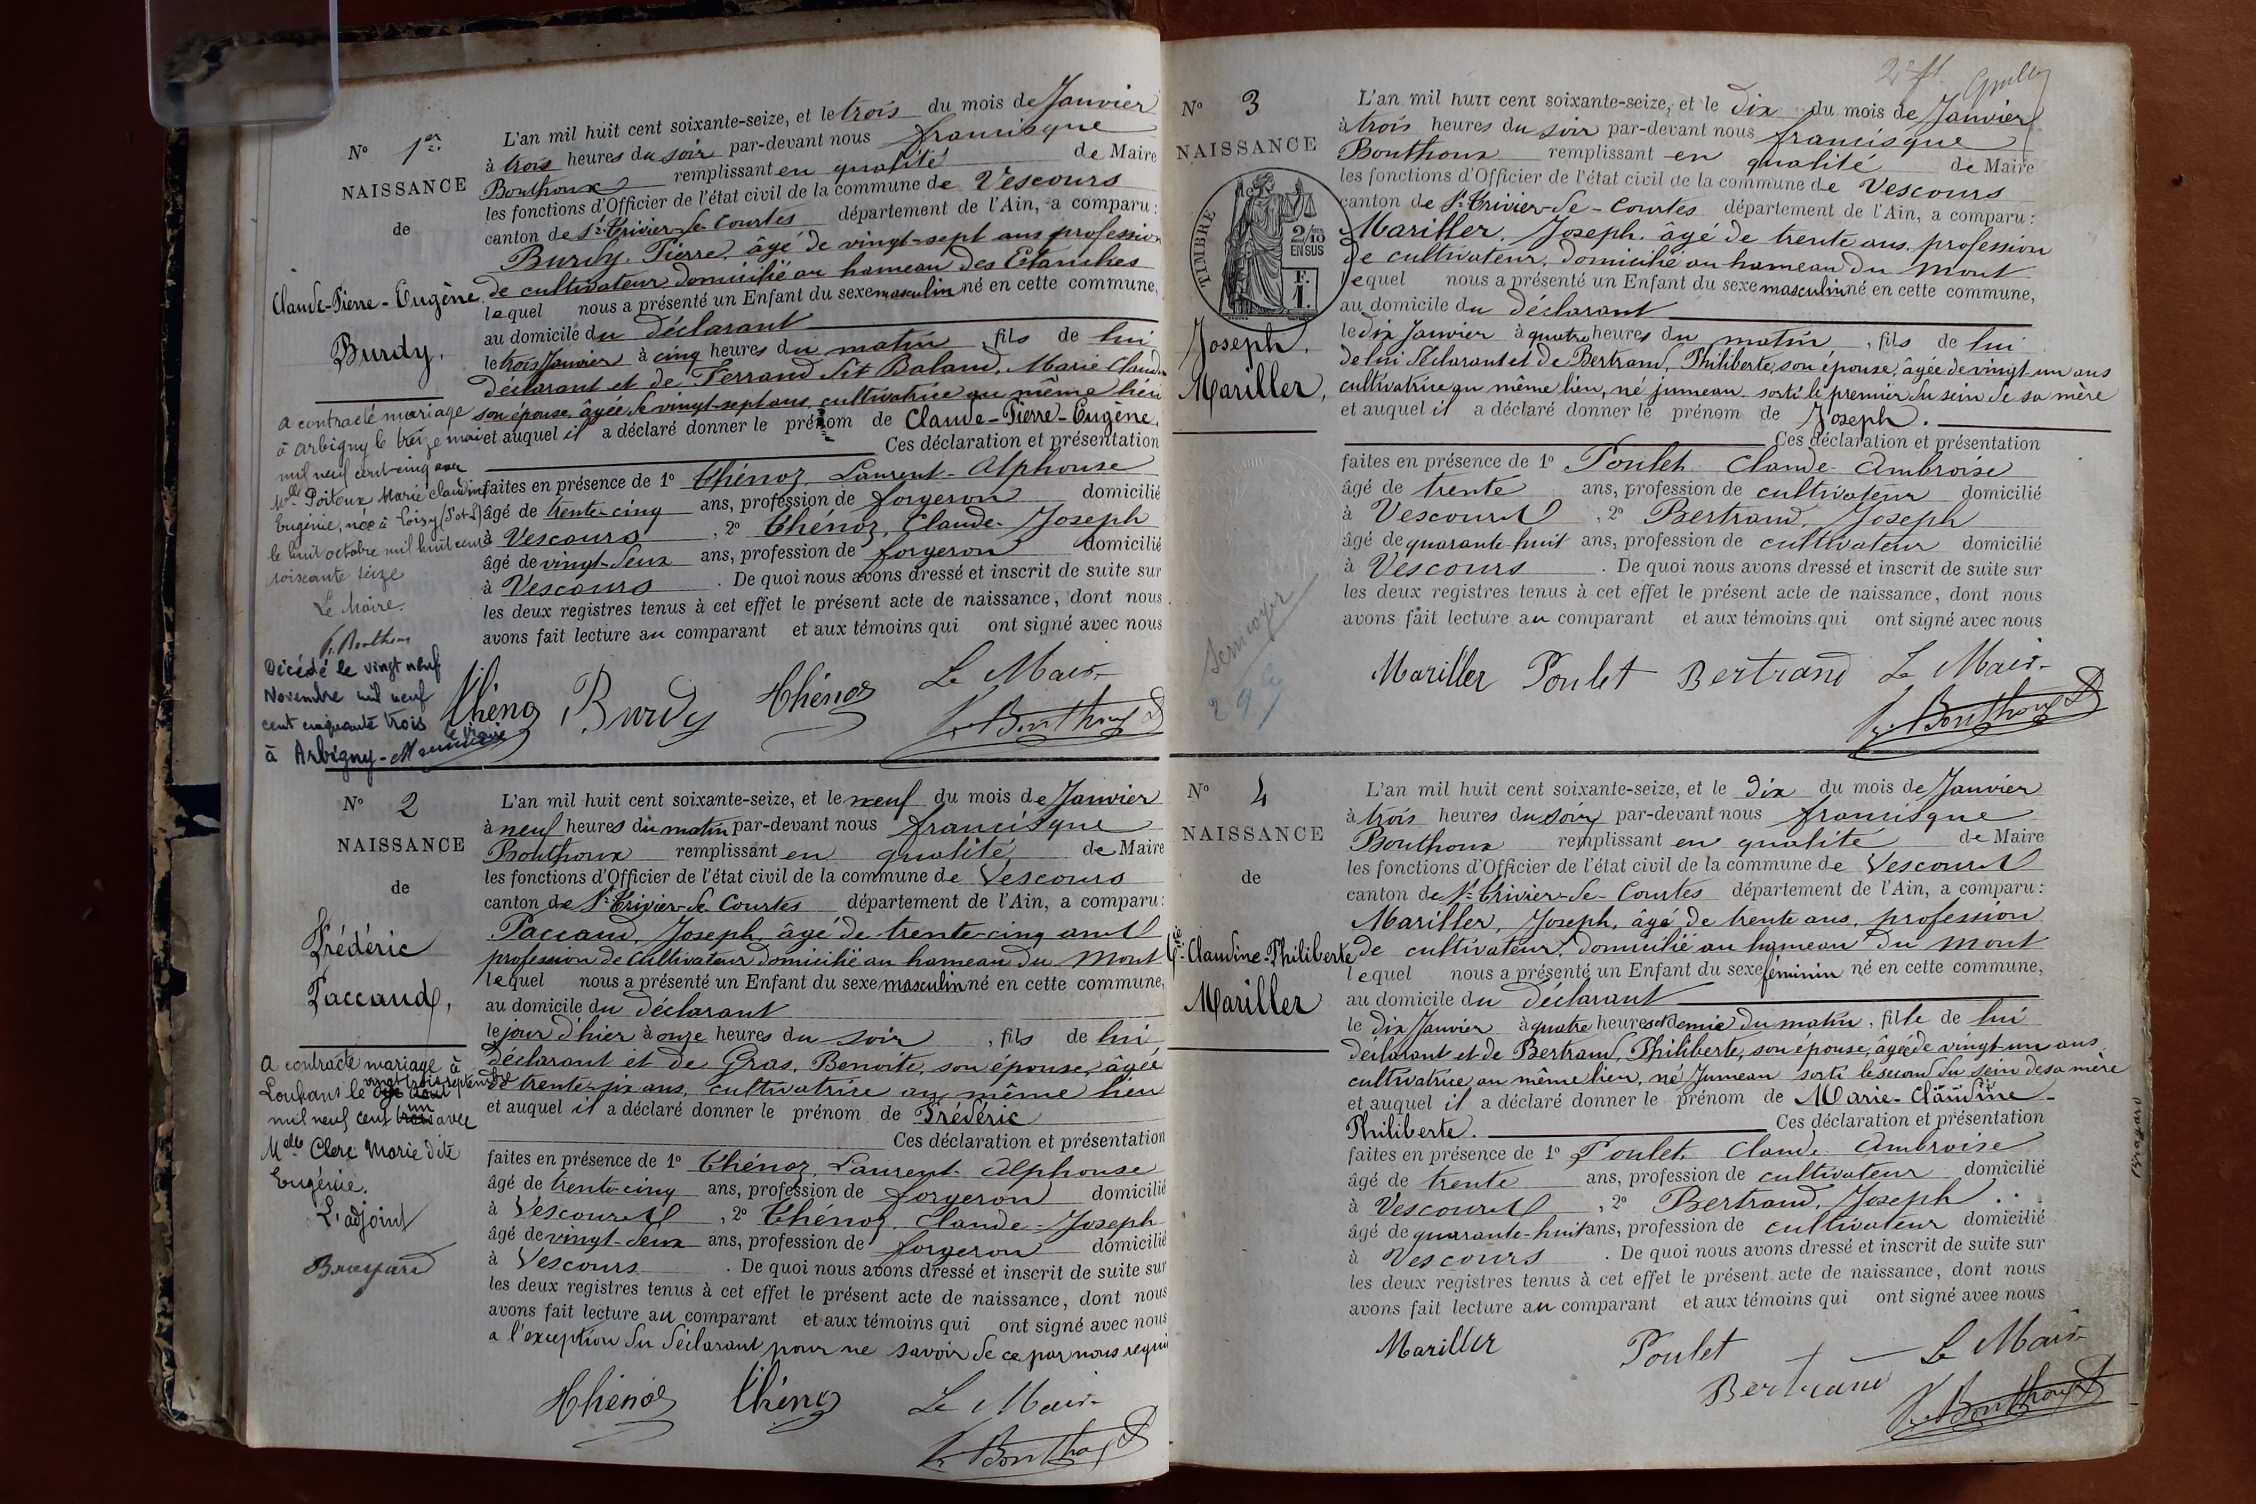 N° 1er
NAISSANCE
de
Claude-Pierre-Eugène
Burdy.
a contracté mariage
à Arbigny le treize mai
mil neuf cent cinq avec
Melle Poiteux Marie Claudine
Eugénie, née à Loisy (S et L)
le huit octobre mil huit cent
soixante seize
Le Maire.
F. Bouthoux
Décédé le vingt neuf
Novembre mil neuf
cent cinquante trois
à Arbigny-
L'an mil huit cent soixante-seize, et le trois du mois de Janvier
à trois heures du soir par-devant nous francisque
Bouthoux remplissant en qualité de Maire
les fonctions d'Officier de l'état civil de la commune de Vescours
canton de St Trivier-de-Courtes département de l'Ain, a comparu :
Burdy, Pierre, âgé de vingt-sept ans profession
de cultivateur domicilié au hameau des Etanches
lequel nous a présenté un Enfant du sexe masculin né en cette commune,
au domicile du déclarant
le trois Janvier à cinq heures du matin, fils de lui
déclarant et de Ferrand dit Baland, Marie Claudine
son épouse, âgée de vingt-sept ans, cultivatrice au même lieu
et auquel il a déclaré donner le prénom de Claude-Pierre-Eugène.
Ces déclaration et présentation
faites en présence de 1° Thénoz, Laurent-Alphonse
âgé de trente-cinq ans, profession de forgeron domicilié
à Vescours, 2° Thénoz, Claude-Joseph
âgé de vingt-deux ans, profession de forgeron domicilié
à Vescours. De quoi nous avons dressé et inscrit de suite sur
les deux registres tenus à cet effet le présent acte de naissance, dont nous
avons fait lecture au comparant et aux témoins qui ont signé avec nous
Thénoz Burdy Thénoz Le Maire
F. Bouthoux
N° 2
NAISSANCE
de
Frédéric
Paccaud,
a contracté mariage à
Louhans le vingt trois septembre
mil neuf cent un avec
Melle Clerc Marie dite
Eugénie.
L'adjoint
L'an mil huit cent soixante-seize, et le neuf du mois de Janvier
à neuf heures du matin par-devant nous francisque
Bouthoux remplissant en qualité de Maire
les fonctions d'Officier de l'état civil de la commune de Vescours
canton de St Trivier-de-Courtes département de l'Ain, a comparu :
Paccaud, Joseph, âgé de trente-cinq ans
profession de cultivateur domicilié au hameau du Mont
lequel nous a présenté un Enfant du sexe masculin né en cette commune,
au domicile du déclarant
le jour d'hier à onze heures du soir, fils de lui
déclarant et de Gras, Benoite, son épouse, âgée
de trente-six ans, cultivatrice au même lieu
et auquel il a déclaré donner le prénom de Frédéric
Ces déclaration et présentation
faites en présence de 1° Thénoz, Laurent-Alphonse
âgé de trente-cinq ans, profession de forgeron domicilié
à Vescours, 2° Thénoz, Claude-Joseph
âgé de vingt-deux ans, profession de forgeron domicilié
à Vescours. De quoi nous avons dressé et inscrit de suite sur
les deux registres tenus à cet effet le présent acte de naissance, dont nous
avons fait lecture au comparant et aux témoins qui ont signé avec nous
a l'exception du déclarant pour ne savoir de ce par nous requis
Thénoz Thénoz Le Maire
F. Bouthoux
N° 3
NAISSANCE
de
TIMBRE
2/10
EN SUS
F.
1.
Joseph.
Mariller,
L'an mil huit cent soixante-seize, et le dix du mois de Janvier
à trois heures du soir par-devant nous francisque
Bouthoux remplissant en qualité de Maire
les fonctions d'Officier de l'état civil de la commune de Vescours
canton de St Trivier-de-Courtes département de l'Ain, a comparu :
Mariller, Joseph, âgé de trente ans, profession
de cultivateur, domicilié au hameau du Mont
lequel nous a présenté un Enfant du sexe masculin né en cette commune,
au domicile du déclarant
le dix Janvier à quatre heures du matin, fils de lui
de lui déclarant et de Bertrand, Philiberte, son épouse, âgée de vingt-un ans
cultivatrice au même lieu, né jumeau sorti le premier du sein de sa mère
et auquel il a déclaré donner le prénom de Joseph.
Ces déclaration et présentation
faites en présence de 1° Poulet Claude Ambroise
âgé de trente ans, profession de cultivateur domicilié
à Vescours, 2° Bertrand, Joseph
âgé de quarante-huit ans, profession de cultivateur domicilié
à Vescours. De quoi nous avons dressé et inscrit de suite sur
les deux registres tenus à cet effet le présent acte de naissance, dont nous
avons fait lecture au comparant et aux témoins qui ont signé avec nous
Mariller Poulet Bertrand Le Maire
F. Bouthoux
N° 4
NAISSANCE
de
Mie-Claudine-Philiberte
Mariller
L'an mil huit cent soixante-seize, et le dix du mois de Janvier
à trois heures du soir par-devant nous francisque
Bouthoux remplissant en qualité de Maire
les fonctions d'Officier de l'état civil de la commune de Vescours
canton de St Trivier-de-Courtes département de l'Ain, a comparu :
Mariller, Joseph, âgé de trente ans, profession
de cultivateur, domicilié au hameau du Mont
lequel nous a présenté un Enfant du sexe féminin né en cette commune,
au domicile du déclarant
le dix Janvier à quatre heures et demie du matin, fille de lui
déclarant et de Bertrand, Philiberte, son épouse, âgée de vingt-un ans
cultivatrice au même lieu, né Jumeau sorti le second du sein de sa mère
et auquel il a déclaré donner le prénom de Marie-Claudine-
Philiberte. Ces déclaration et présentation
faites en présence de 1° Poulet Claude Ambroise
âgé de trente ans, profession de cultivateur domicilié
à Vescours, 2° Bertrand, Joseph
âgé de quarante-huit ans, profession de cultivateur domicilié
à Vescours. De quoi nous avons dressé et inscrit de suite sur
les deux registres tenus à cet effet le présent acte de naissance, dont nous
avons fait lecture au comparant et aux témoins qui ont signé avec nous
Mariller Poulet Le Maire
Bertrand F. Bouthoux